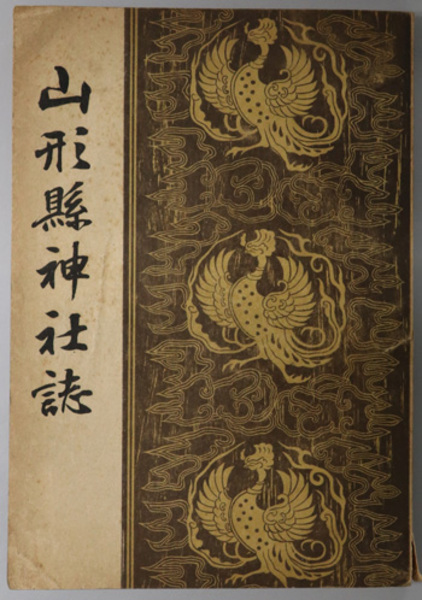 山形縣神社誌